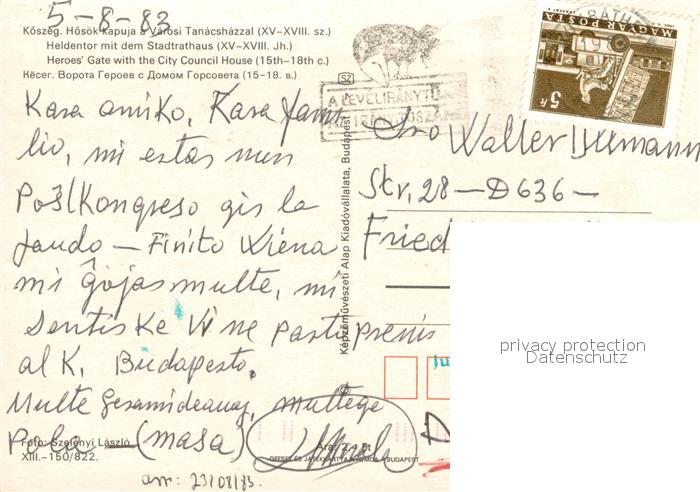 5-8-83
Kőszeg. Hősök kapuja a Városi Tanácsházzal (XV–XVIII. sz.)
Heldentor mit dem Stadtrathaus (XV–XVIII. Jh.)
Heroes' Gate with the City Council House (15th–18th c.)
Кёсег. Ворота Героев с Домом Горсовета (15–18. в.)
Kara amiko, Kara fami
lio, mi estas nun
Poŝtkongreso gis la
ĵaudo — Finito Wiena
mi ĝojas multe, mi
sentis ke Vi ne partoprenis
al K. Budapesto.
Multe gesamideanoj, multege
Polo — (masa)
Fotó: Szelényi László
XIII.–150/822.
Ára: 2,– Ft
OFFSET ÉS JÁTÉKKÁRTYA NYOMDA, BUDAPEST
arr: 23/08/83.
Képzőművészeti Alap Kiadóvállalata, Budapest
SZ
A LEVÉLIRÁNYÍTÓ
MAGYAR POSTA
5 Ft
Sro Walter Ullmann
Str, 28 — D636 —
Fried
privacy protection
Datenschutz